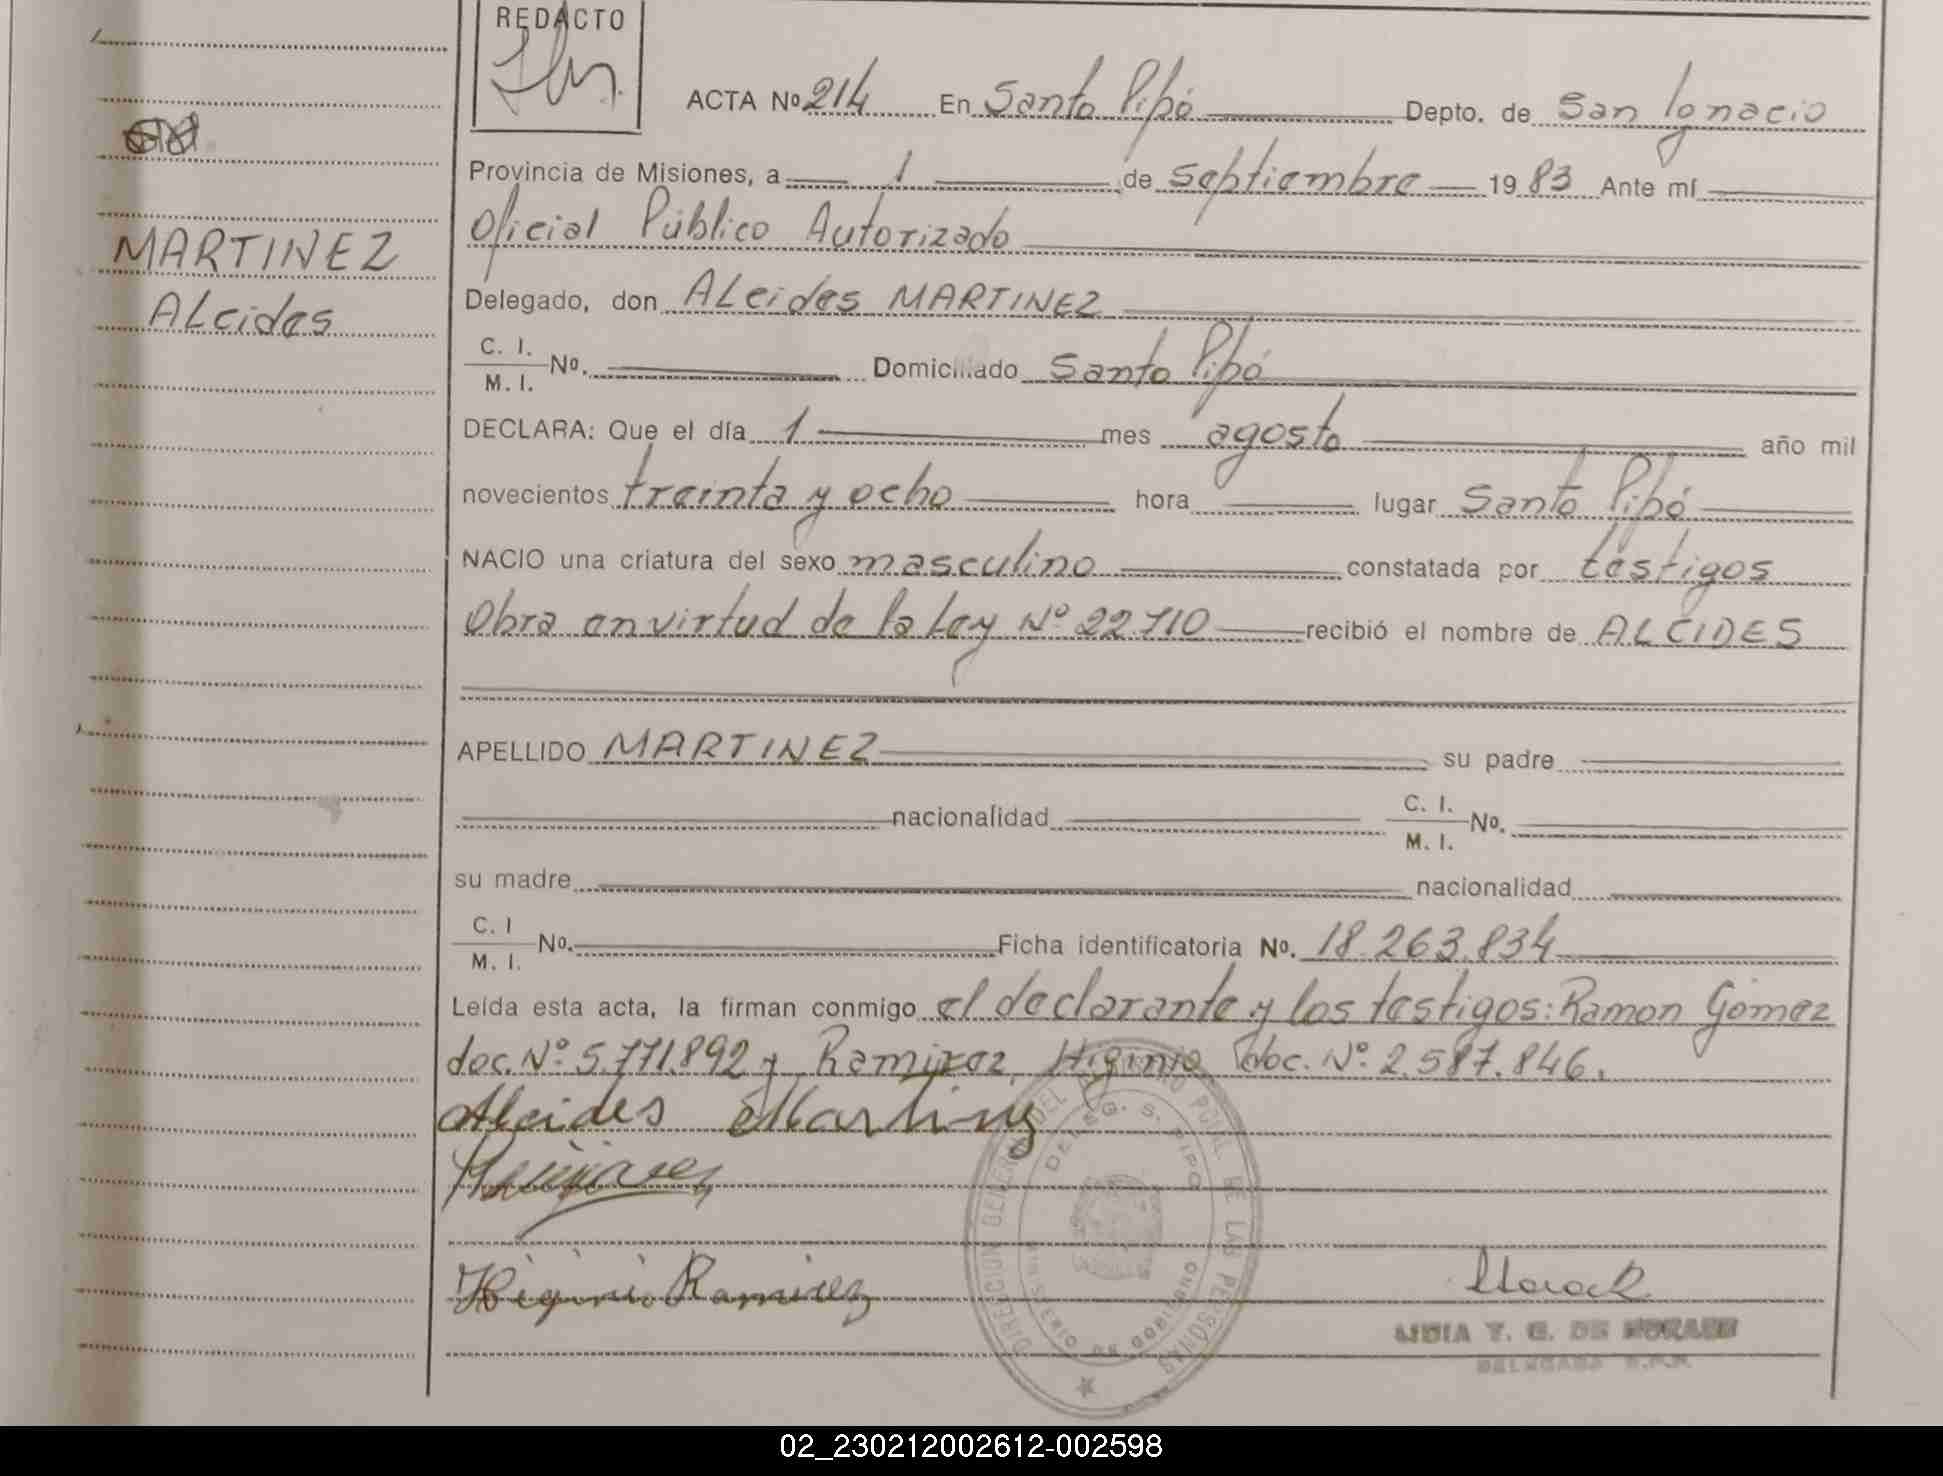 REDACTO
ACTA Nº 214 En Santo Pipó Depto. de San Ignacio
Provincia de Misiones, a 1 de septiembre 19 83 Ante mí
Oficial Público Autorizado
MARTINEZ
Alcides
Delegado, don Alcides MARTINEZ
C. I.
M. I. Nº. Domiciliado Santo Pipó
DECLARA: Que el día 1 mes agosto año mil
novecientos treinta y ocho hora lugar Santo Pipó
NACIO una criatura del sexo masculino constatada por testigos
Obra en virtud de la Ley Nº 22.710 recibió el nombre de ALCIDES
APELLIDO MARTINEZ su padre
nacionalidad C. I.
M. I. Nº.
su madre nacionalidad
C. I
M. I. Nº. Ficha identificatoria Nº. 18.263.834
Leída esta acta, la firman conmigo el declarante y los testigos: Ramon Gómez
doc. Nº 5.771.892 y Ramirez, Higinio doc. Nº 2.587.846.
Alcides Martinez
Higinio Ramirez
DIRECCION GENERAL DEL REGISTRO PCIAL. DE LAS PERSONAS
DELEG. S. PIPO
MINISTERIO DE GOBIERNO
LIDIA T. G. DE MORALES
DELEGADA
02_230212002612-002598